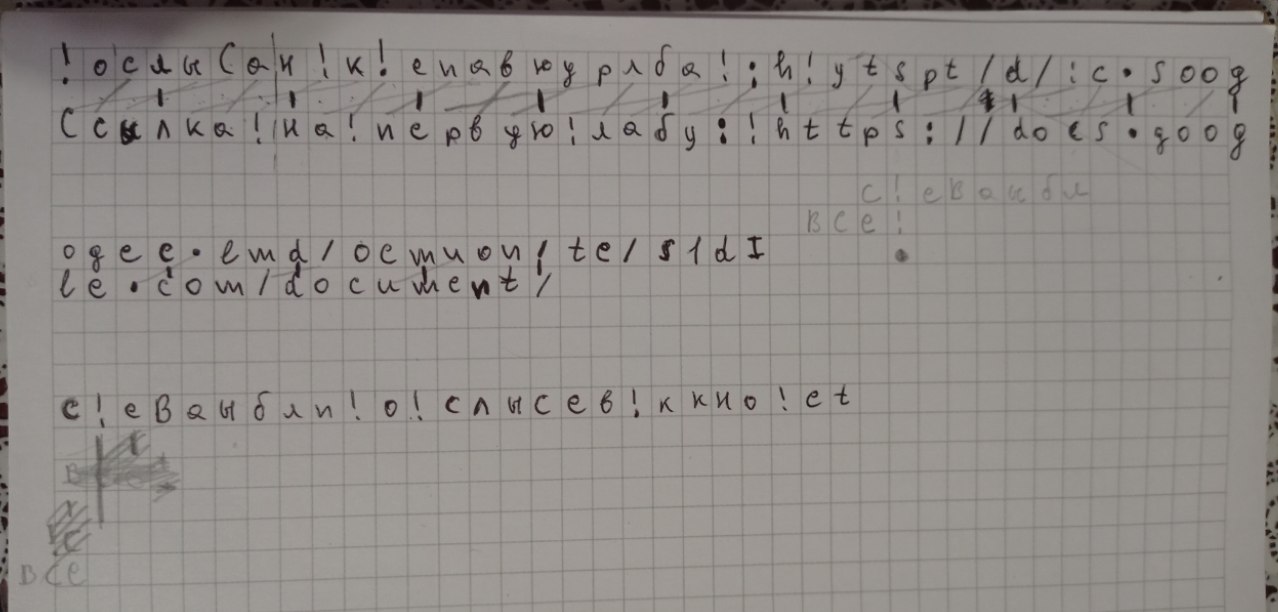 ! о с л ы С а н ! к ! е п а в ю у р л б а ! : h ! y t s p t / d / : c . s o o g
С с ы л к а ! н а ! п е р в у ю ! л а б у : ! h t t p s : / / d o c s . g o o g
с ! е В а ы б л
В С е !
o g e e . l m d / o c m u o n / t e / s 1 d I
l e . c o m / d o c u m e n t /
с ! е В а ы б л и ! о ! с л ы с е в ! к к н о ! е t
В С е